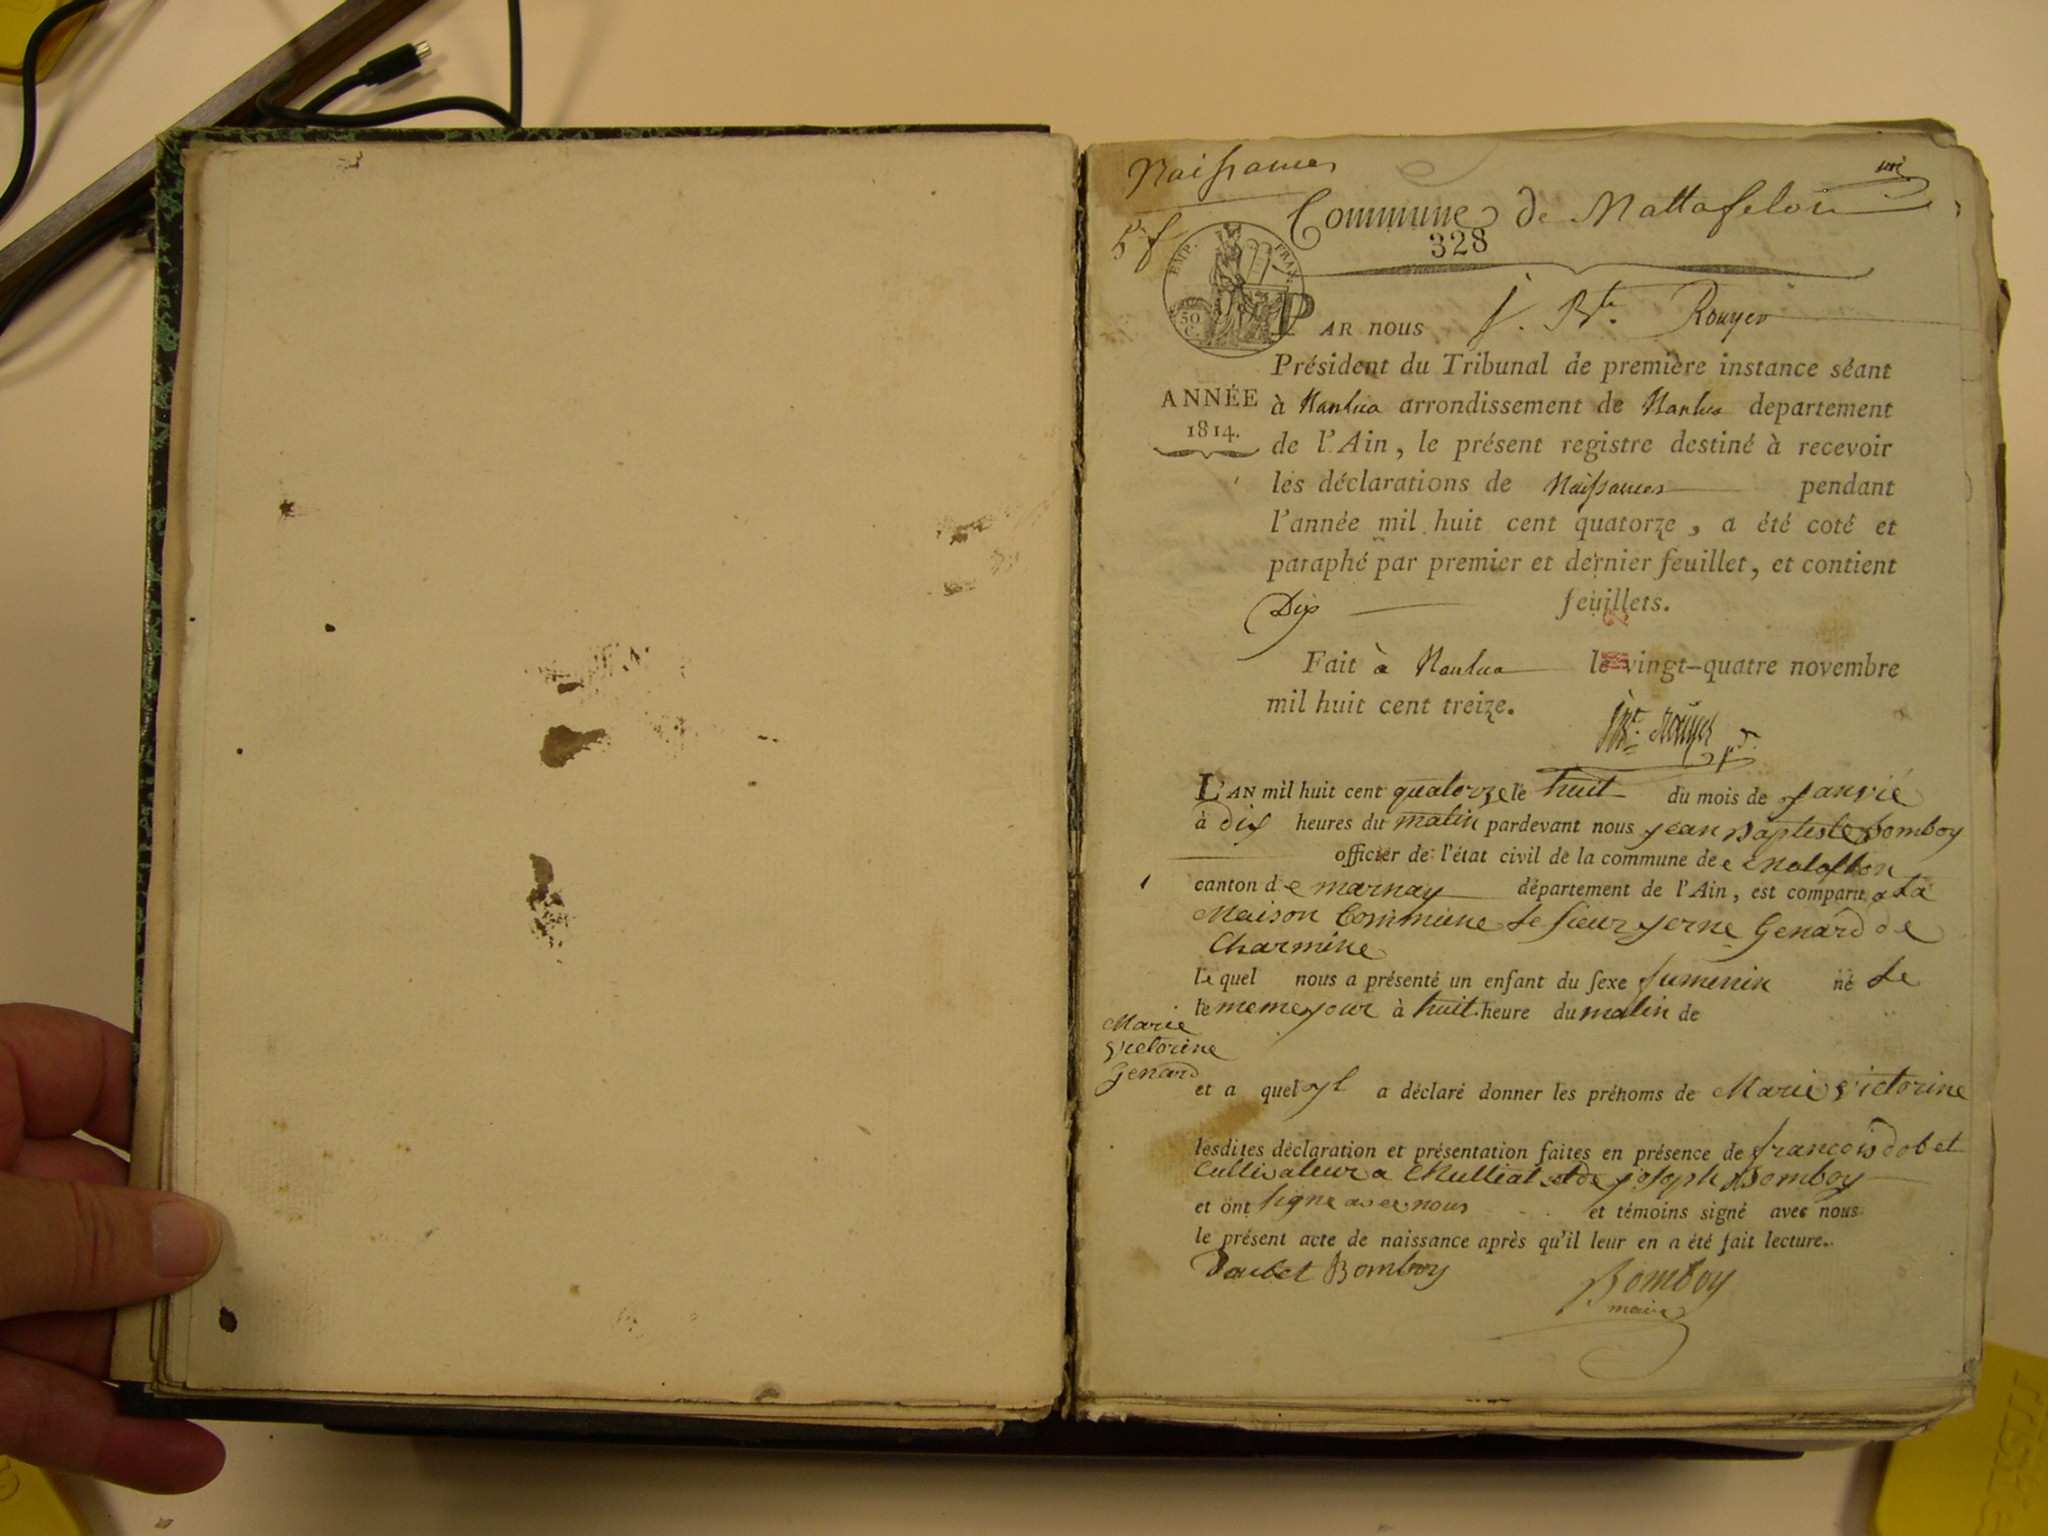 Naissances
un
Commune de Mattafelon
5 f
328
EMP. FRAN.
50 C.
PAR nous J. Bte. Rouyer
Président du Tribunal de première instance séant
ANNÉE 1814.
à Nantua arrondissement de Nantua departement
de l'Ain, le présent registre destiné à recevoir
les déclarations de Naissances pendant
l'année mil huit cent quatorze, a été coté et
paraphé par premier et dernier feuillet, et contient
Dix feuillets.
Fait à Nantua le vingt-quatre novembre
mil huit cent treize.
JBt. Rouyer
L'AN mil huit cent quatorze le huit du mois de janvié
à dix heures du matin pardevant nous jean Baptiste Bomboy
officier de l'état civil de la commune de Matafelon
1
canton de marnay département de l'Ain, est comparu a La
Maison Commune Le sieur jerne Genard de
Charmine
le quel nous a présenté un enfant du sexe fuminin né Le
le meme jour à huit heure du matin de
Marie
victorine
Genard
et a quel yl a déclaré donner les prénoms de Marie victorine
lesdites déclaration et présentation faites en présence de francois dobet
Cultivateur a Chulliat et de joseph Bomboy
et ont signe avec nous et témoins signé avec nous
le présent acte de naissance après qu'il leur en a été fait lecture.
Doubet Bomboy
Bomboy
maire